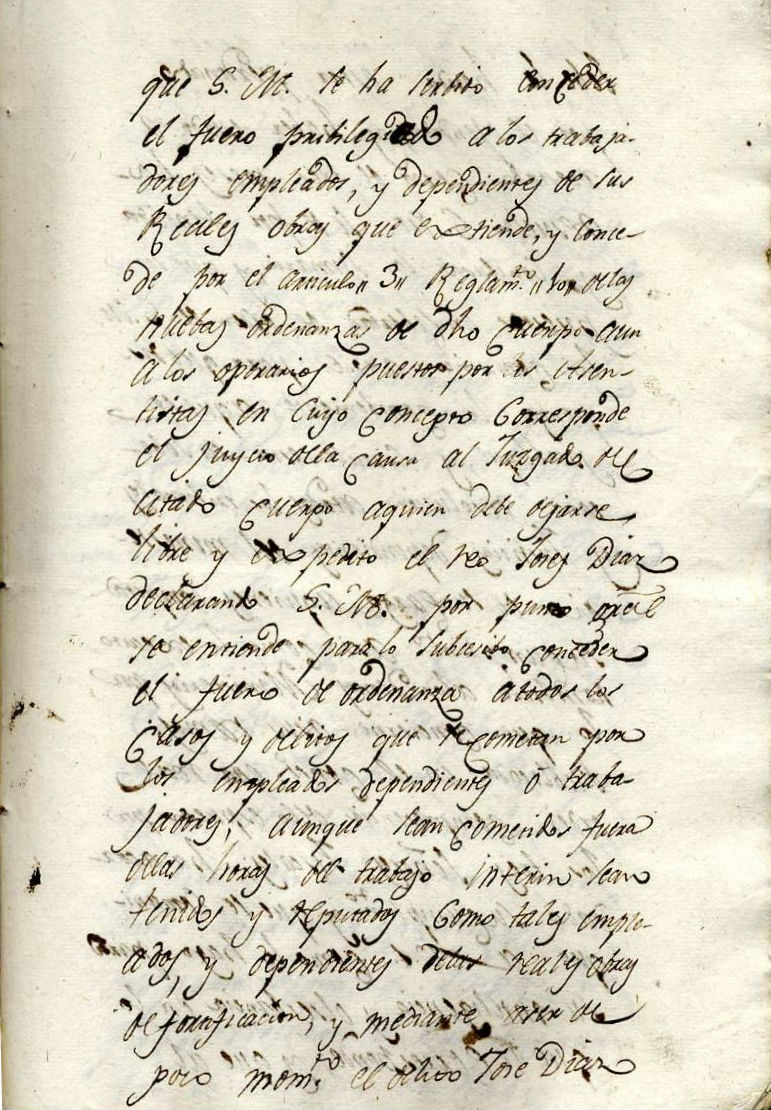 que S. M. se ha serbido conceder
el fuero pribilegiado a los trabaja-
dores empleados, y dependientes de sus
Reales obras que extiende, y conce-
de por el articulo 3 Reglam.to 10 de las
nuebas ordenanzas de dho cuerpo aun
a los operarios puestos por los Asen-
tistas en cuyo concepto corresponde
el juycio de la causa al Juzgado del
citado cuerpo aquien debe dejarse
libre y expedito el reo Josef Diaz
declarando S. M. por punto gral
se entiende para lo subcesibo conceder
el fuero de ordenanza a todos los
casos y delitos que se cometan por
los empleados dependientes o traba-
jadores, aunque sean cometidos fuera
de las horas del trabajo interin sean
tenidos y reputados como tales emple-
ados, y dependientes de las reales obras
de fortificacion, y mediante a ser de
poco mom.to el delito Jose Diaz